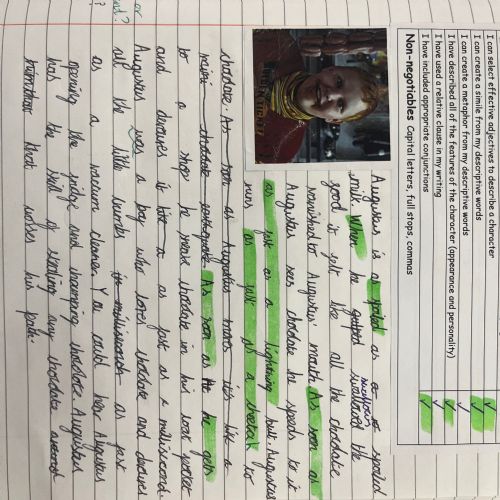 I can select effective adjectives to describe a character
I can create a simile from my descriptive words
I can create a metaphor from my descriptive words
I have described all of the features of the character (appearance and personality)
I have used a relative clause in my writing
I have included appropriate conjunctions
Non-negotiables Capital letters, full stops, commas
Augustus is as spoiled as a spoiled
milk. When he gulped swallowed the
good it felt like all the chocolate
vanished to Augustus mouth. As soon as
Augustus sees chocolate he speeds to it
as fast as a lightning bolt. Augustus
runs as fast as a cheetah to
chocolate. As soon as Augustus
As soon as he gets
to a shop he sneaks chocolate in his coat pocket
and devours it as fast as a millisecond.
Augustus was a boy who loves chocolate and devours
all the little as fast
as a vacuum cleaner. You could hear Augustus
opening the fridge and chomping chocolate. Augustus
has the skill of finding any chocolate around
him that crosses his path.
or
?